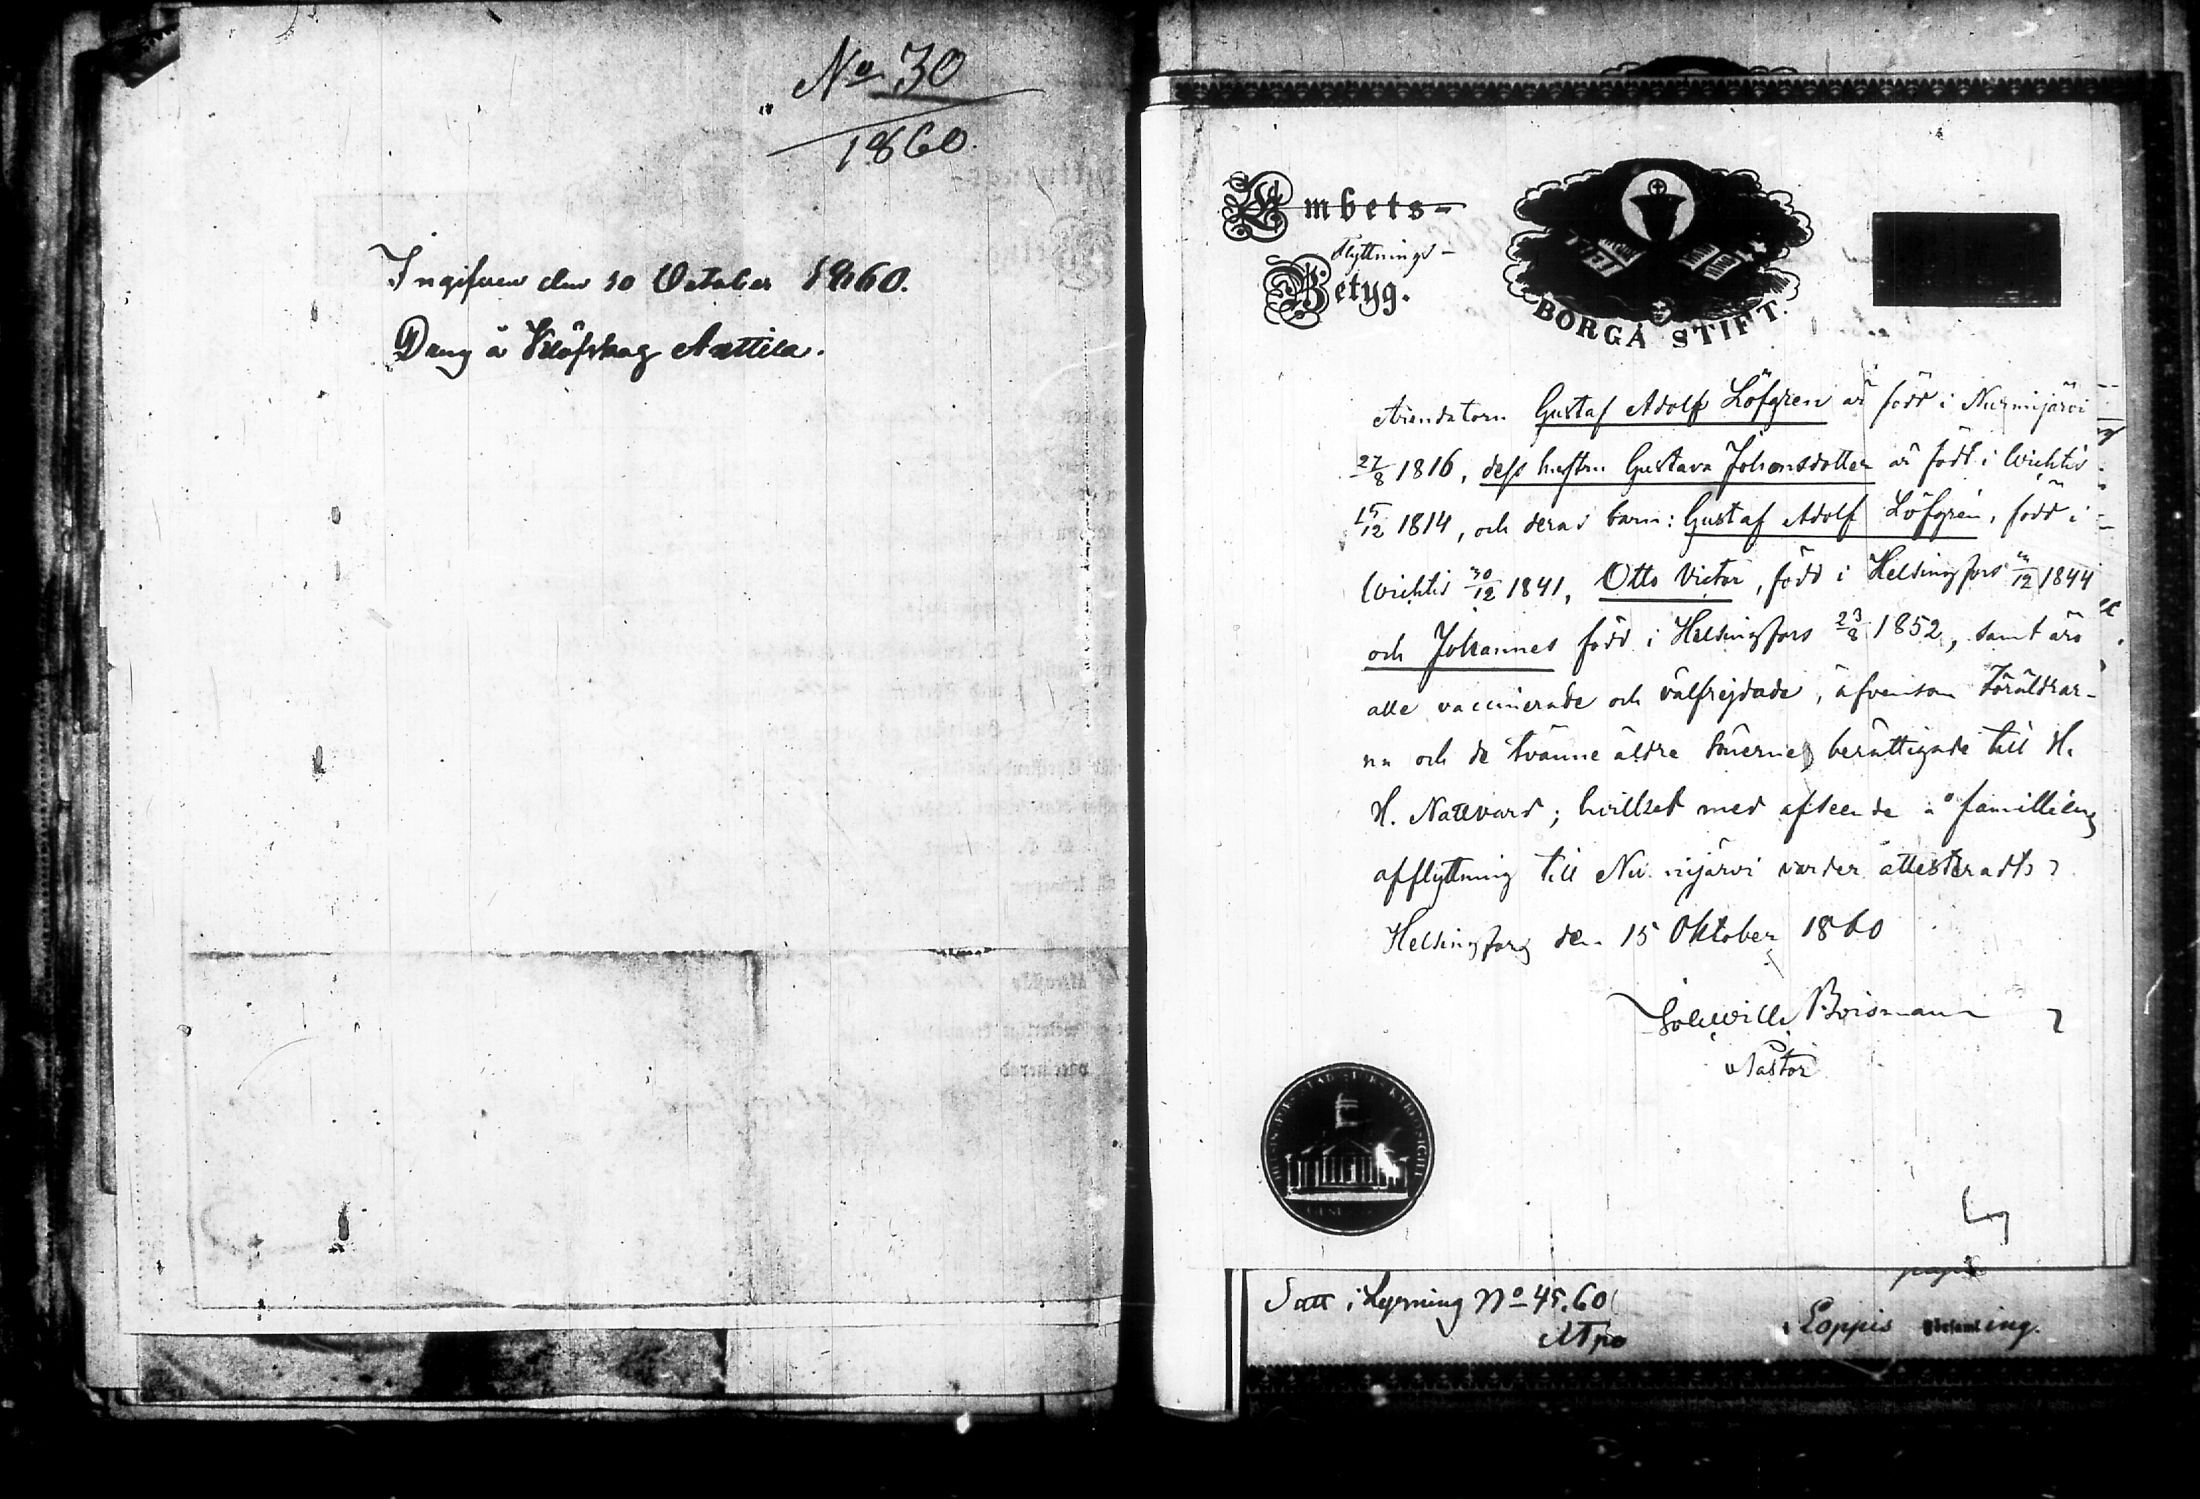 No 30
1860.
Ingifven den 30 October 1860.
Dräng å
Embets-
Flyttnings-
Betyg.
BORGÅ STIFT.
Arendatorn Gustaf Adolf Löfgren är född i Nurmijärvi
27/8 1816, dess hustru Gustava Johansdotter är född i Wichtis
15/12 1814, och deras barn: Gustaf Adolf Löfgren, född i
Wichtis 30/12 1841, Otto Victor, född i Helsingfors /12 1844
och Johannes född i Helsingfors 23/8 1852, samt äro
alle vaccinerade och välfrejdade, äfvensom Föräldrar-
na och de tvänne äldre Sönerne berättigade till H.
H. Nattvard; hvilket med afseende å familliens
afflyttning till Nurmijärvi varder attesteradt;
Helsingfors den 15 Oktober 1860
Boismann
Pastor
Satt i Lysning No 45. 60
Loppis Församling.